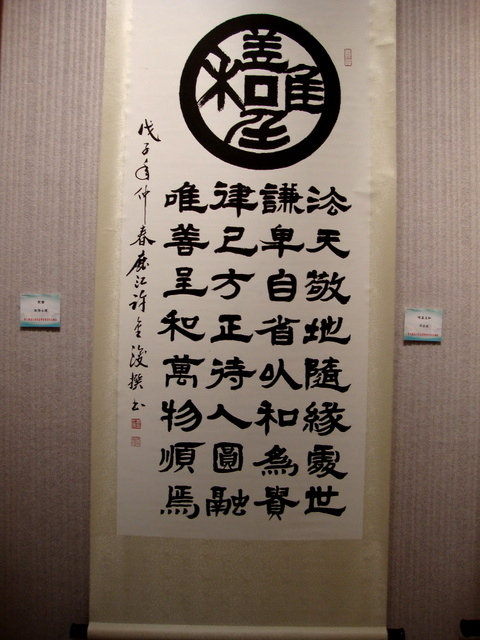 唯善呈和
法天敬地隨緣處世
謙卑自省以和為貴
律己方正待人圓融
唯善呈和萬物順焉
戊子年仲春江許金浚撰书